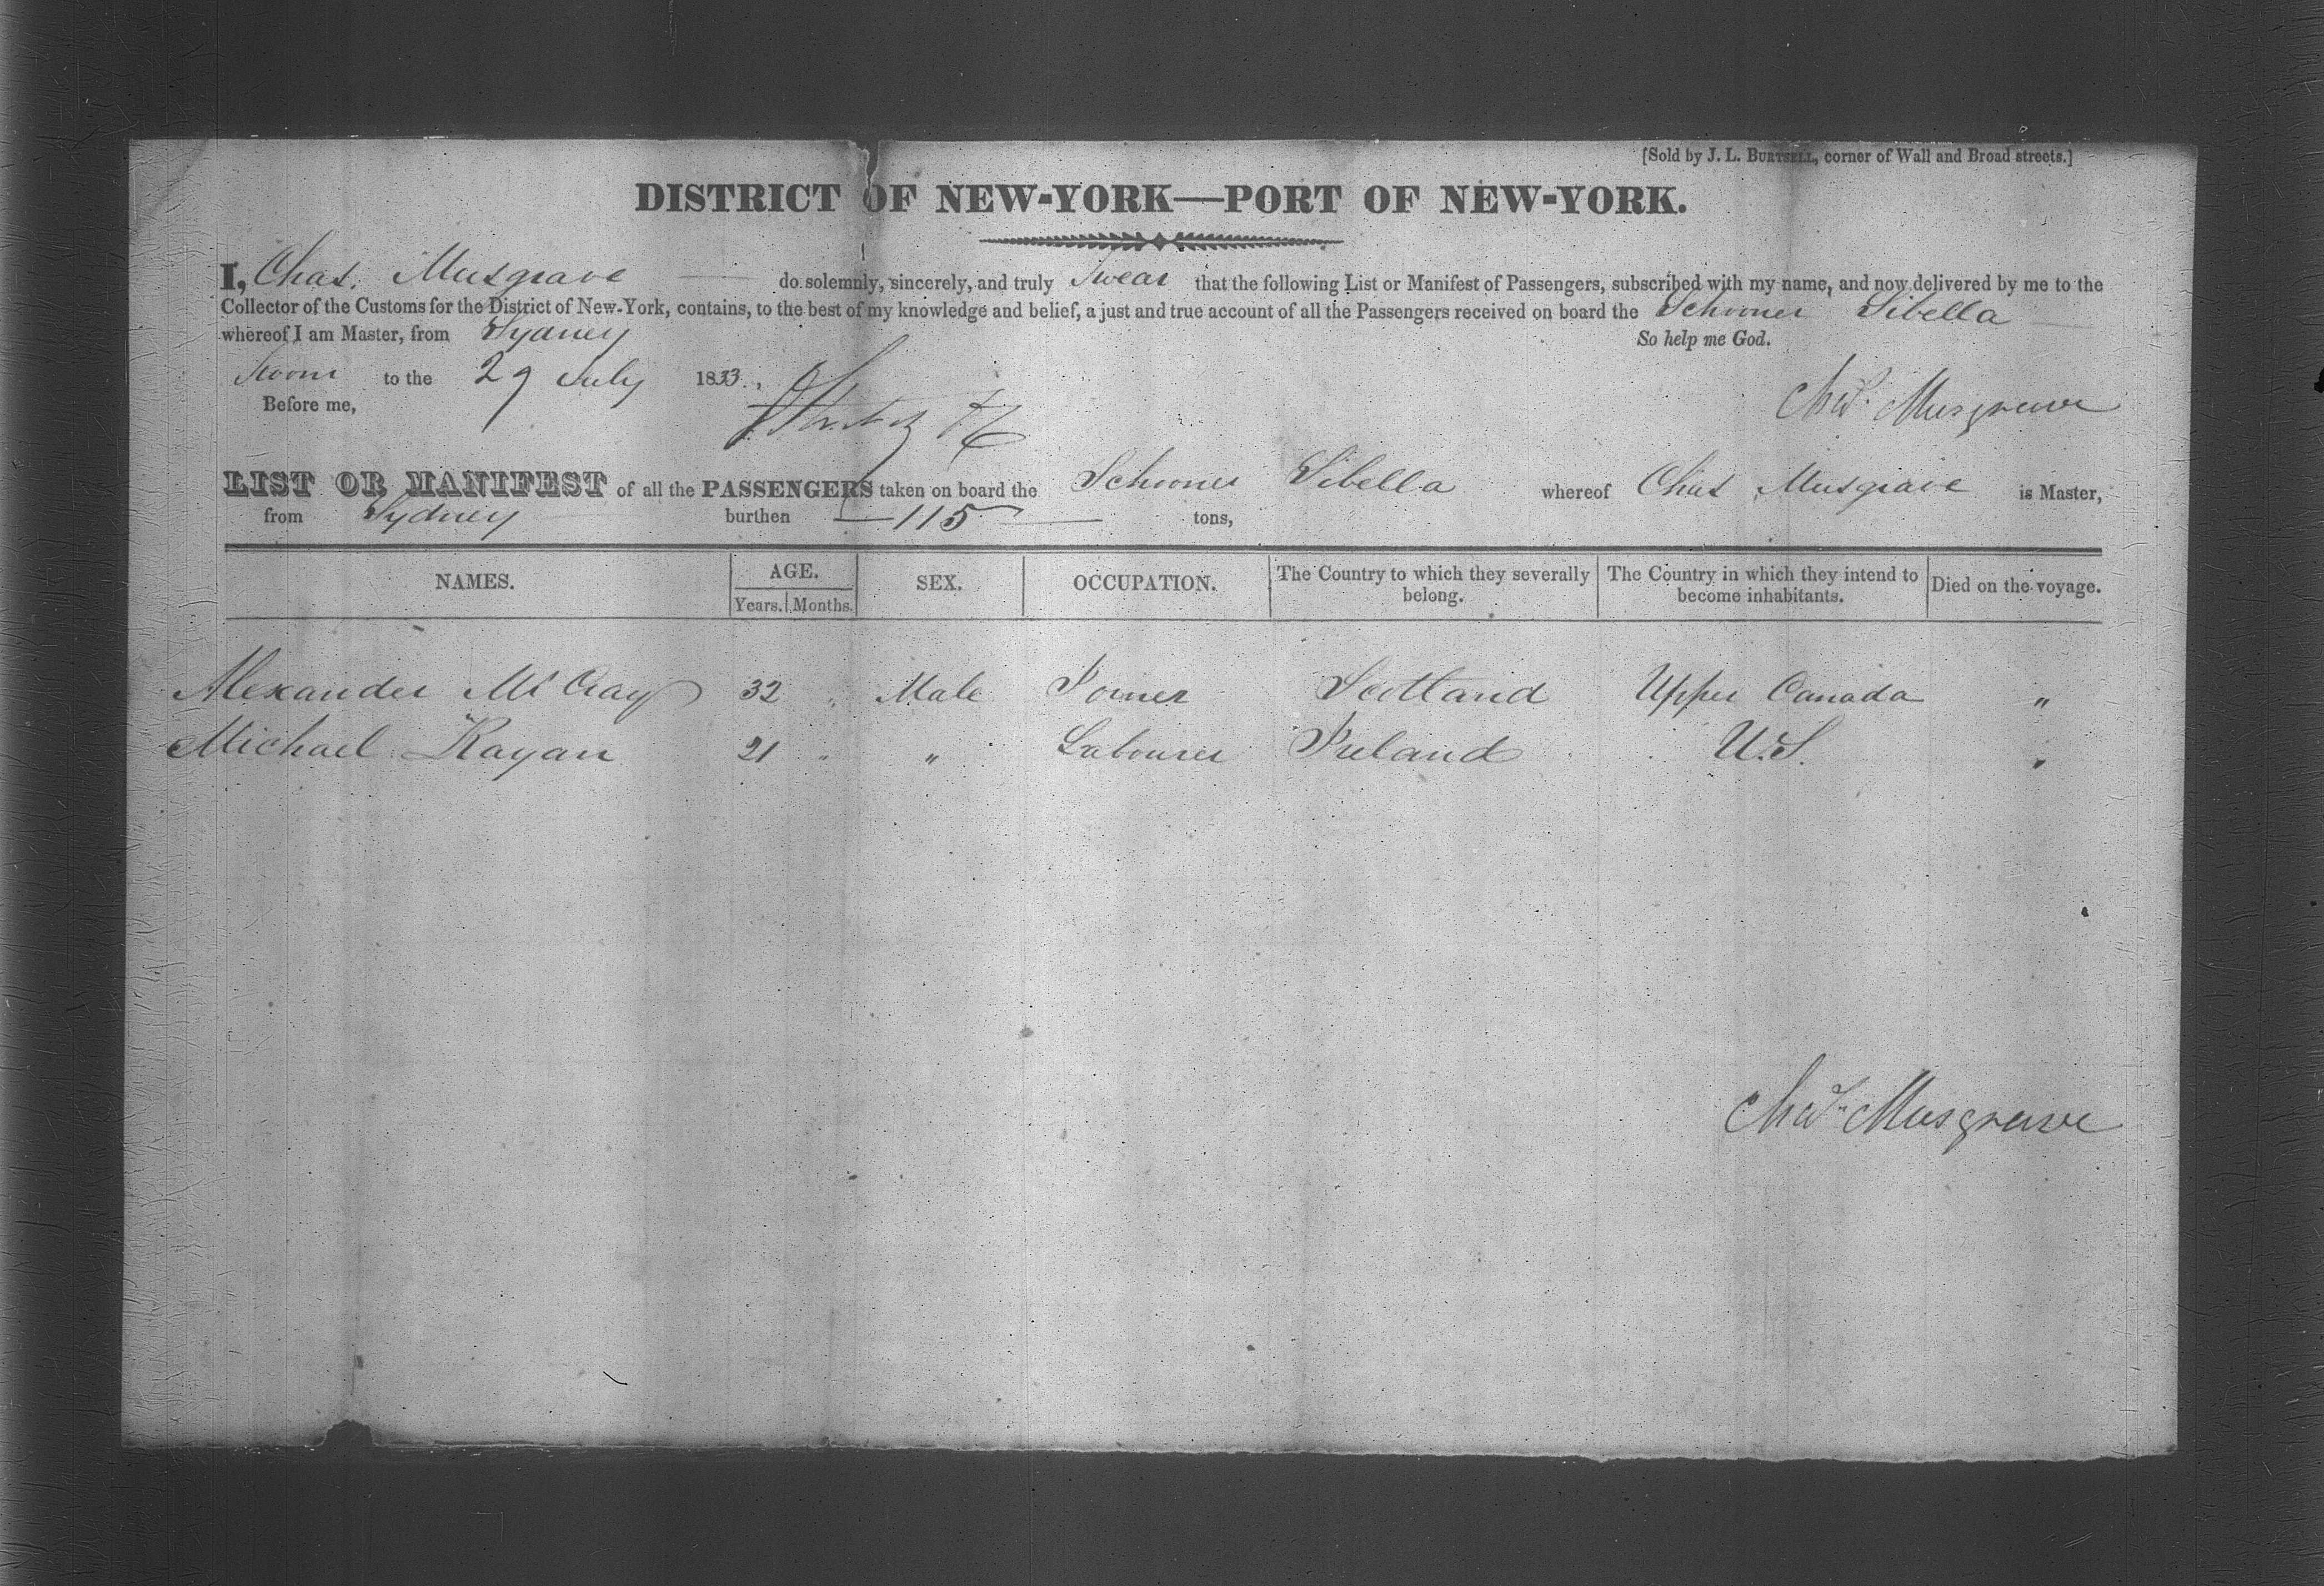 [Sold by J. L. BURTSELL, corner of Wall and Broad streets.]
DISTRICT OF NEW-YORK—PORT OF NEW-YORK.
I, Chas. Musgrave do solemnly, sincerely, and truly Swear that the following List or Manifest of Passengers, subscribed with my name, and now delivered by me to the
Collector of the Customs for the District of New-York, contains, to the best of my knowledge and belief, a just and true account of all the Passengers received on board the Schooner Sibella
whereof I am Master, from Sydney So help me God.
Sworn to the 29 July 1833.
Before me, Chas. Musgrave
LIST OR MANIFEST of all the PASSENGERS taken on board the Schooner Sibella whereof Chas Musgrave is Master,
from Sydney burthen 115 tons,
NAMES. AGE. Years. Months. SEX. OCCUPATION. The Country to which they severally belong. The Country in which they intend to become inhabitants. Died on the voyage.
Alexander McCray 32 " Male Scotland Upper Canada "
Michael Rayan 21 " " Labourer Ireland U.S. "
Chas. Musgrave